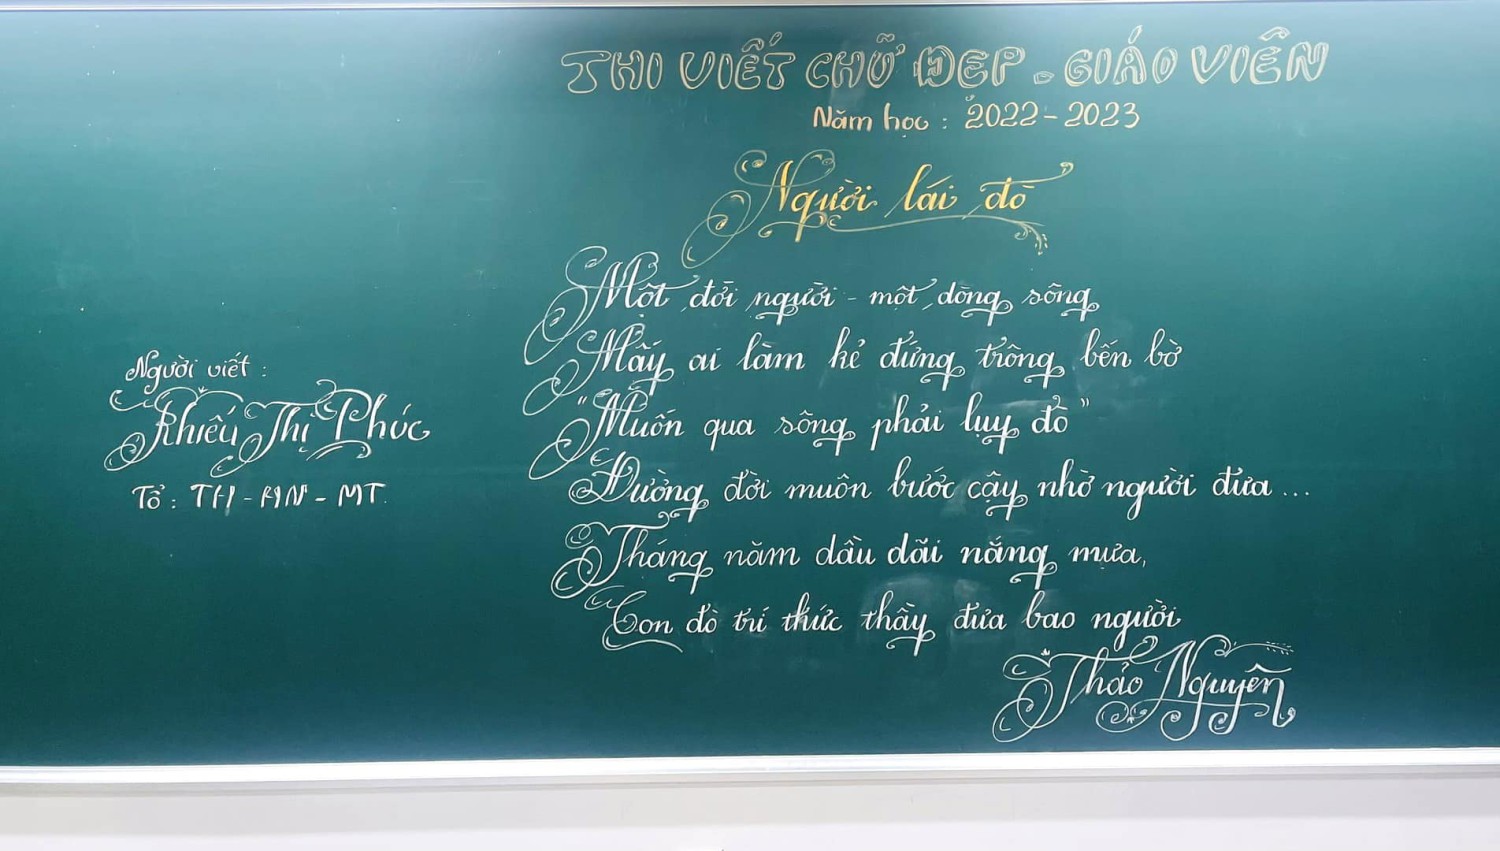 THI VIẾT CHỮ ĐẸP - GIÁO VIÊN
Năm học : 2022 - 2023
Người lái đò
Một đời người - một dòng sông
Mấy ai làm kẻ đứng trông bến bờ
"Muốn qua sông phải lụy đò"
Đường đời muôn bước cậy nhờ người đưa ...
Tháng năm dầu dãi nắng mưa,
Con đò trí thức thầy đưa bao người
Thảo Nguyên
Người viết :
Khiếu Thị Phúc
Tổ : TH - AN - MT